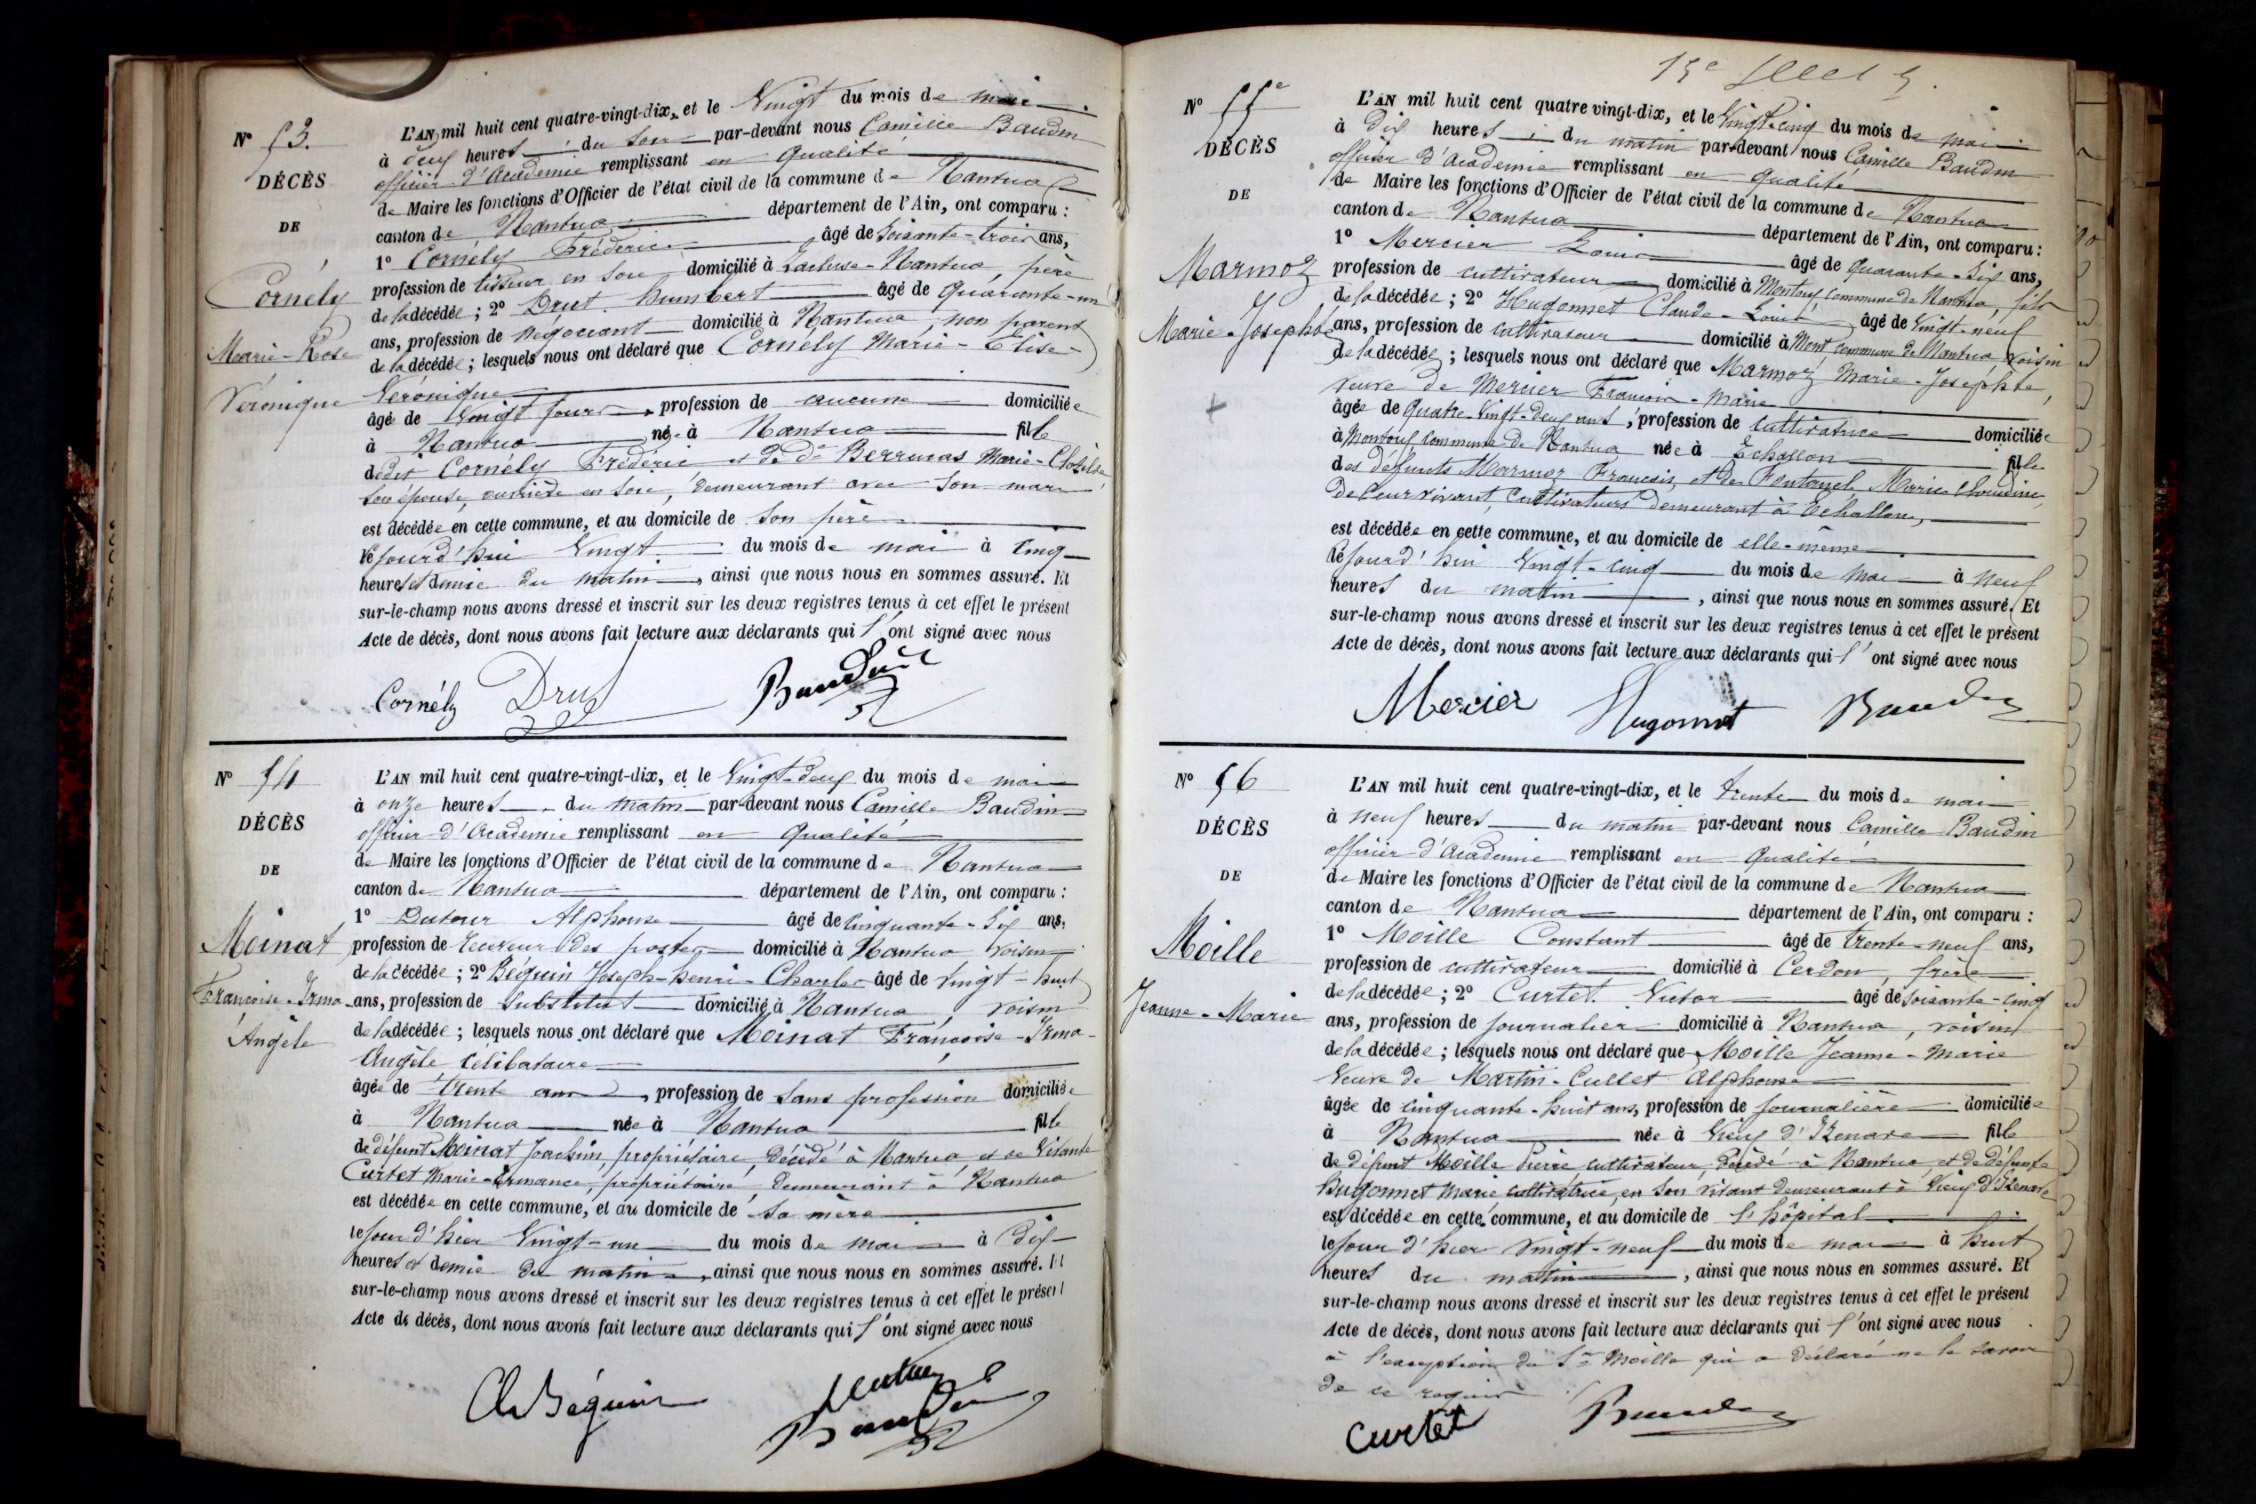 N° 53.
DÉCÈS
DE
Cornély
Marie-Rose
Véronique
L'AN mil huit cent quatre-vingt-dix, et le Vingt du mois de mai
à deux heures du soir par-devant nous Camille Baudin
officier d'Académie remplissant en qualité
de Maire les fonctions d'Officier de l'état civil de la commune de Nantua
canton de Nantua département de l'Ain, ont comparu :
1° Cornély Fréderic âgé de soixante-trois ans,
profession de tisseur en soie domicilié à Lacluse-Nantua, père
de la décédée ; 2° Drut Humbert âgé de Quarante-un
ans, profession de négociant domicilié à Nantua, non parent
de la décédée ; lesquels nous ont déclaré que Cornély Marie-Elise-
Véronique
âgé de Vingt jours, profession de aucune domiciliée
à Nantua né à Nantua fille
dudit Cornély Frédéric et de de Marie-Clotilde
son épouse, ouvrière en soie, demeurant avec son mari
est décédée en cette commune, et au domicile de son père
le jourd'hui Vingt du mois de mai à cinq
heures et demie du matin, ainsi que nous nous en sommes assuré. Et
sur-le-champ nous avons dressé et inscrit sur les deux registres tenus à cet effet le présent
Acte de décès, dont nous avons fait lecture aux déclarants qui l'ont signé avec nous
Cornély Drut Baudin
N° 54
DÉCÈS
DE
Moinat
Françoise-Irma
Angèle
L'AN mil huit cent quatre-vingt-dix, et le Vingt-deux du mois de mai
à onze heures du matin par-devant nous Camille Baudin
officier d'Académie remplissant en qualité
de Maire les fonctions d'Officier de l'état civil de la commune de Nantua
canton de Nantua département de l'Ain, ont comparu :
1° Dutour Alphonse âgé de cinquante-six ans,
profession de receveur des postes domicilié à Nantua voisin
de la décédée ; 2° Béguin Joseph-Henri-Charles âgé de vingt-huit
ans, profession de substitut domicilié à Nantua, voisin
de la décédée ; lesquels nous ont déclaré que Moinat Françoise-Irma-
Angèle célibataire
âgée de trente ans, profession de sans profession domiciliée
à Nantua née à Nantua fille
de défunt Moinat Joachim, propriétaire, décédé à Nantua et de vivante
Curtet Marie-Ermance, propriétaire, demeurant à Nantua
est décédée en cette commune, et au domicile de sa mère
le jour d'hier Vingt-un du mois de mai à dix
heures et demie du matin, ainsi que nous nous en sommes assuré. Et
sur-le-champ nous avons dressé et inscrit sur les deux registres tenus à cet effet le présent
Acte de décès, dont nous avons fait lecture aux déclarants qui l'ont signé avec nous
Ch Béguin Dutour
Baudin
N° 55
DÉCÈS
DE
Marmoz
Marie-Josephte
L'AN mil huit cent quatre vingt-dix, et le Vingt-cinq du mois de mai
à dix heures du matin par-devant nous Camille Baudin
officier d'Académie remplissant en qualité
de Maire les fonctions d'Officier de l'état civil de la commune de Nantua
canton de Nantua département de l'Ain, ont comparu :
1° Mercier Louis âgé de quarante-six ans,
profession de cultivateur domicilié à Montoux commune de Nantua, fils
de la décédée ; 2° Hugonnet Claude-Louis âgé de Vingt-neuf
ans, profession de cultivateur domicilié à Mont commune de Nantua, voisin
de la décédée ; lesquels nous ont déclaré que Marmoz Marie-Josephte,
veuve de Mercier François-Marie
âgée de Quatre-Vingt-deux ans, profession de cultivatrice domiciliée
à Montoux commune de Nantua née à Echallon fille
des défunts Marmoz François et de Marie Claudine
de leur vivant, cultivateurs demeurant à Echallon,
est décédée en cette commune, et au domicile de elle-même
le jourd'hui Vingt-cinq du mois de mai à neuf
heures du matin, ainsi que nous nous en sommes assuré. Et
sur-le-champ nous avons dressé et inscrit sur les deux registres tenus à cet effet le présent
Acte de décès, dont nous avons fait lecture aux déclarants qui l'ont signé avec nous
Mercier Hugonnet Baudin
N° 56
DÉCÈS
DE
Moille
Jeanne-Marie
L'AN mil huit cent quatre-vingt-dix, et le trente du mois de mai
à neuf heures du matin par-devant nous Camille Baudin
officier d'Académie remplissant en qualité
de Maire les fonctions d'Officier de l'état civil de la commune de Nantua
canton de Nantua département de l'Ain, ont comparu :
1° Moille Constant âgé de trente-neuf ans,
profession de cultivateur domicilié à Cerdon, frère
de la décédée ; 2° Curtet Victor âgé de soixante-cinq
ans, profession de journalier domicilié à Nantua, voisin
de la décédée ; lesquels nous ont déclaré que Moille Jeanne-Marie
Veuve de Martin-Cullet Alphonse
âgée de cinquante-huit ans, profession de journalière domiciliée
à Nantua née à Vieux d'Izenave fille
de défunt Moille Pierre cultivateur, décédé à Nantua et de défunte
Hugonnet Marie cultivatrice, en son vivant demeurant à Vieux d'Izenave
est décédée en cette commune, et au domicile de l'hôpital
le jour d'hier vingt-neuf du mois de mai à huit
heures du matin, ainsi que nous nous en sommes assuré. Et
sur-le-champ nous avons dressé et inscrit sur les deux registres tenus à cet effet le présent
Acte de décès, dont nous avons fait lecture aux déclarants qui l'ont signé avec nous
à l'exception du Sr Moille qui a déclaré ne le savoir
de ce requis
Curtet Baudin